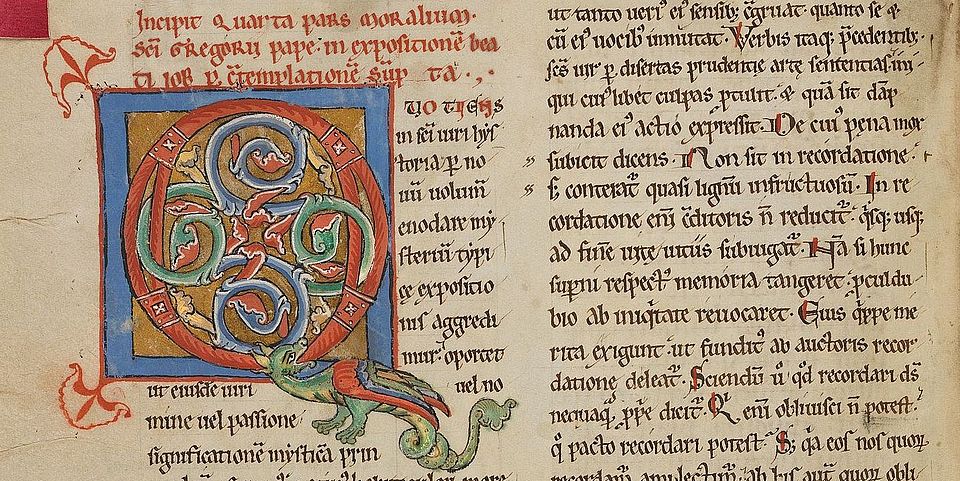 Incipit q̄uarta pars moralium.
Sc̄i Gregorii pape. in expositionē bea
ti iob ꝑ c̄templationē sūp ta.
QUOTIENS
in sc̄i uiri hys
toria ꝑ no
uū uolum̄
enodare my
steriū typi
ce expositio
nis aggredi
mur: oportet
uel no
ut eiusdē uiri
mine uel passione
significationē mysticā prin
ut tanto ueri eꝰ sensibꝫ c̄gruat. quanto se &
cū eꝰ uocibꝰ inmutat. Verbis itaqꝫ p̄cedentibꝫ.
sc̄s uir ꝑ disertas prudentie arte sententias ini-
qui cuiꝰlibet culpas ꝑtulit. & quā sit dāp
nanda eiꝰ actio expressit. De cuiꝰ pena mox
subicit dicens. Non sit in recordatione.
sꝫ conterat̄ quasi lignū infructuosū. In re
cordatione eni c̄ditoris n̄ reducit̄. qͥsqꝫ usqꝫ
ad finē uite uitiis subiugat̄. Nā si hunc
suꝑni respectꝰ memoria tangeret. ꝓculdu-
bio ab iniqͥtate reuocaret. Eius q̄ppe me
rita exigunt. ut funditꝰ ab auctoris recor
datione deleat̄. Sciendū ū qͦd recordari dꝰs
nequaqͣ ꝓprie dicit̄. Qͥ eni obliuisci n̄ potest.
qͦ pacto recordari potest. Sꝫ qͥa eos nos quorꝫ
recordam̄ amplectim̄. ab his aut̄ quorꝫ obli-